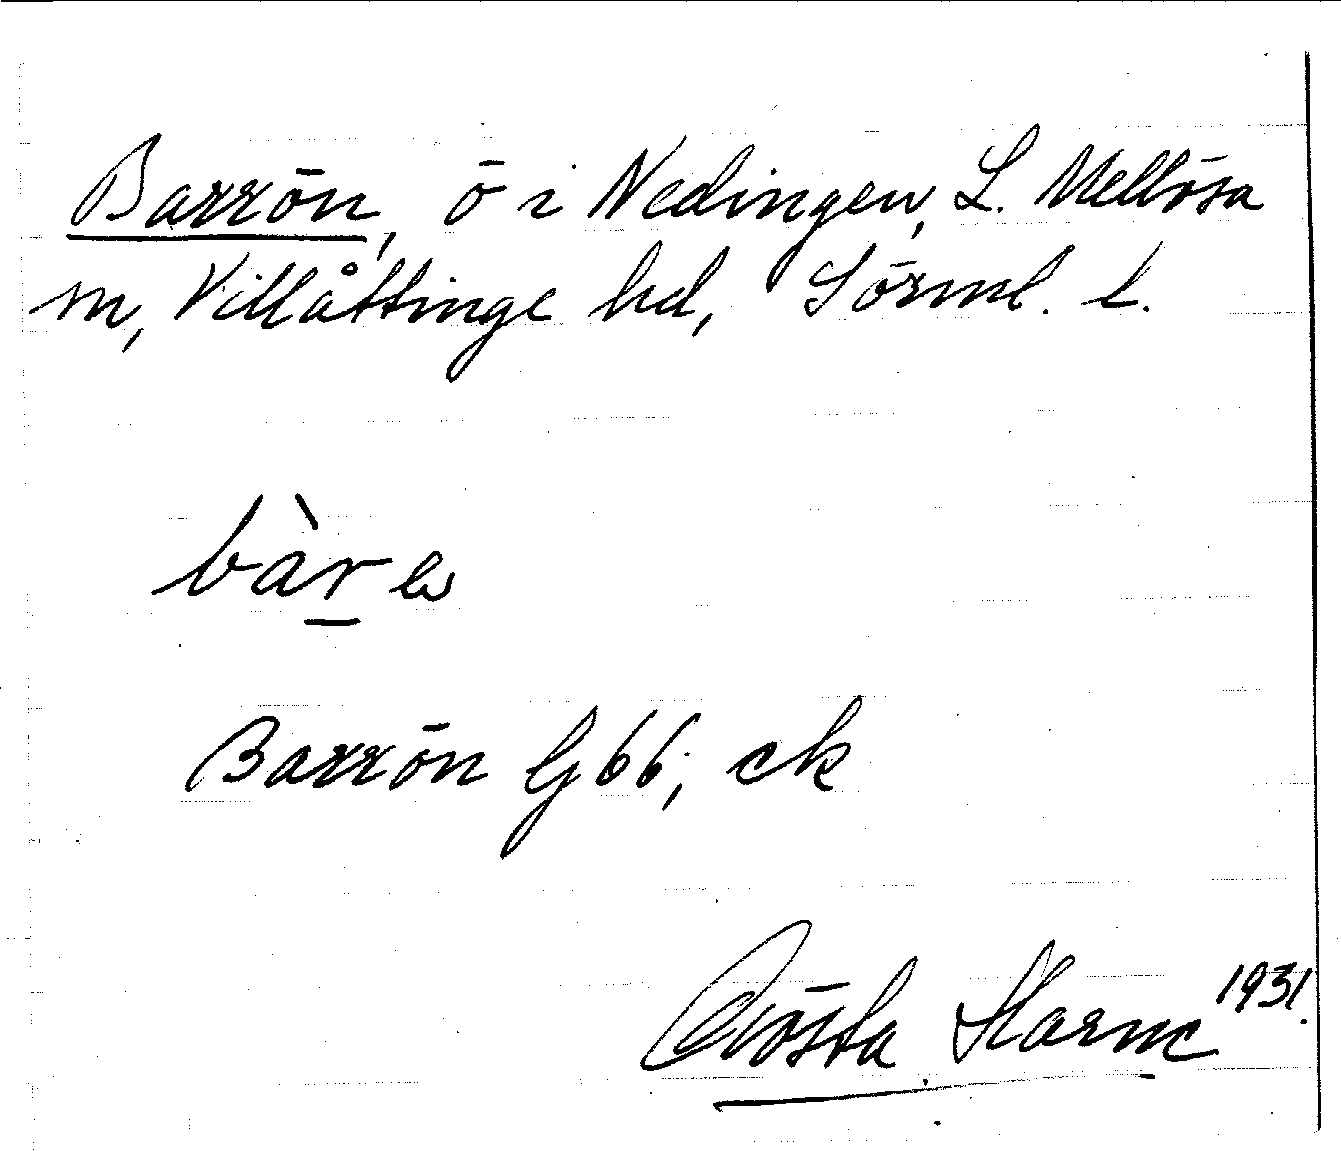 Barrön, ö i Nedingen, L. Mellösa
sn, Villåttinge hd, Sörml. l.
bàrɷ
Barrön G 66; ek
Gösta 1931.